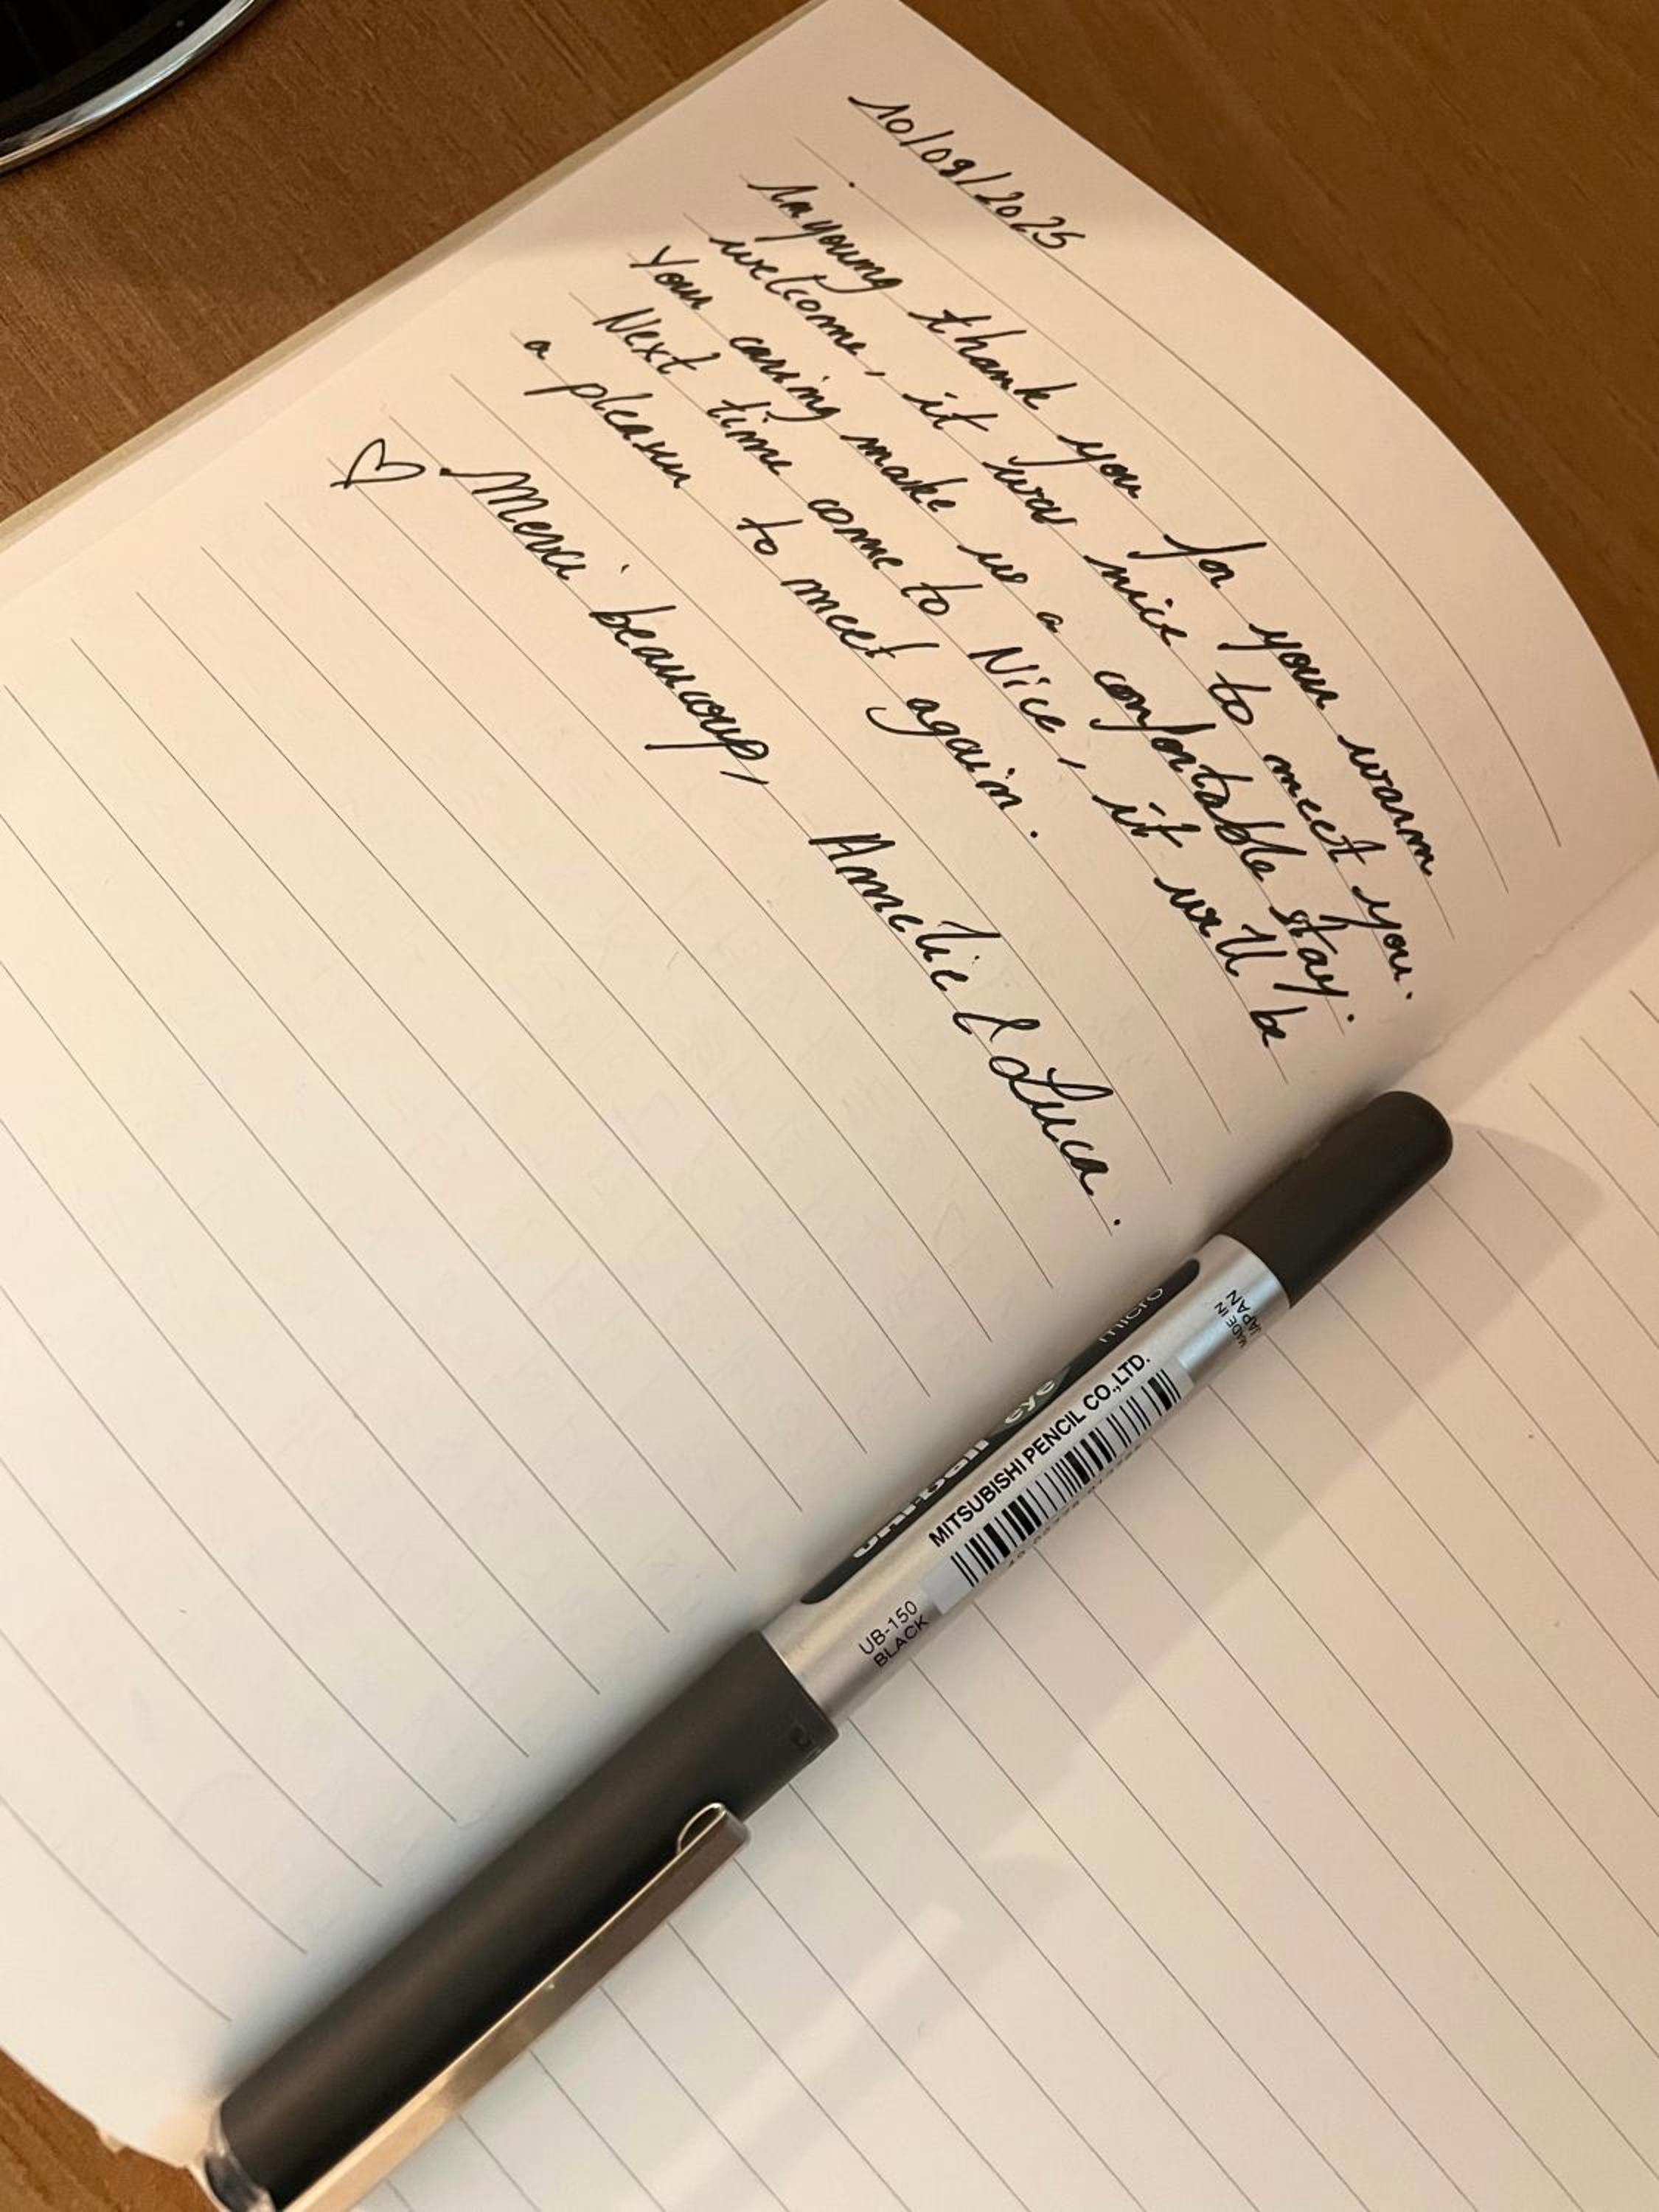 10/09/2025
Nayoung thank you for your warm
welcome, it was nice to meet you.
Your caring make us a confortable stay.
Next time come to Nice, it will be
a pleasur to meet again.
Merci beaucoup,
Amelie & Luca.
uni-ball eye micro
MITSUBISHI PENCIL CO.,LTD.
MADE IN
JAPAN
UB-150
BLACK